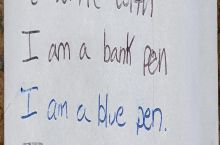 with
I am a bank pen
I am a blue pen.